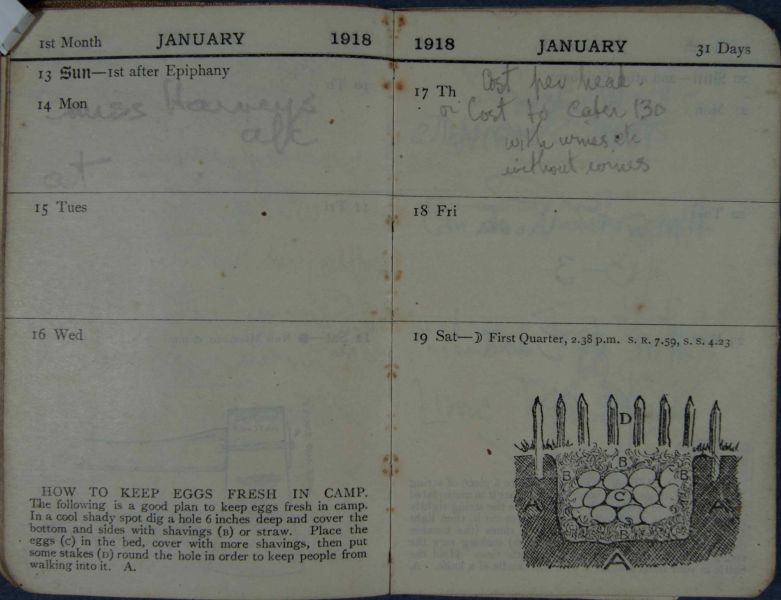 1st Month JANUARY 1918
13 Sun—1st after Epiphany
14 Mon
Miss Harveys
a/c
at
15 Tues
16 Wed
HOW TO KEEP EGGS FRESH IN CAMP.
The following is a good plan to keep eggs fresh in camp.
In a cool shady spot dig a hole 6 inches deep and cover the
bottom and sides with shavings (B) or straw. Place the
eggs (C) in the bed, cover with more shavings, then put
some stakes (D) round the hole in order to keep people from
walking into it. A.
1918 JANUARY 31 Days
17 Th
Cost per head
or Cost to Cater 130
with wines etc
without wines
18 Fri
19 Sat—☽ First Quarter, 2.38 p.m. S. R. 7.59, S. S. 4.23
D
B B B
A C A
B B
A